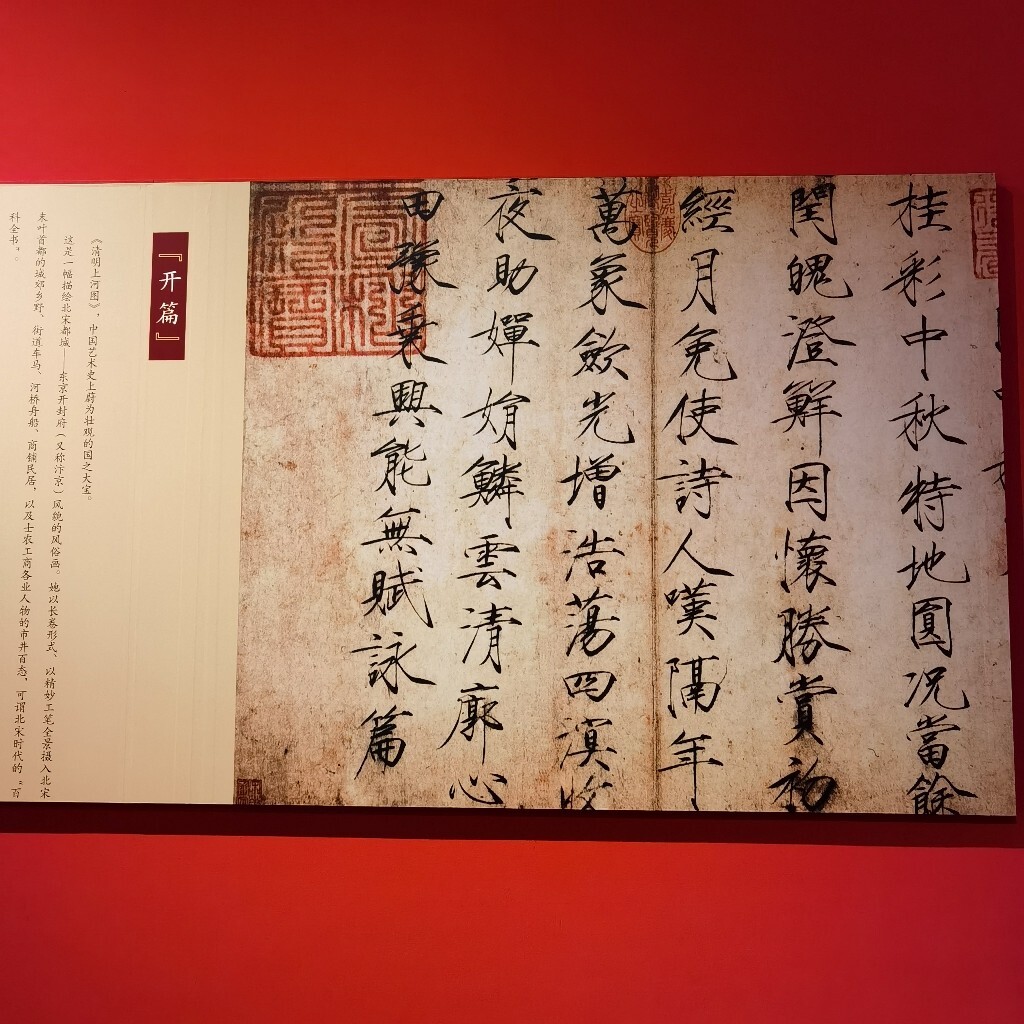 桂彩中秋特地圓况當餘
閏魄澄鮮因懷勝賞初
經月免使詩人嘆隔年
萬象斂光增浩蕩四溟收
夜助嬋娟鱗雲清廓心
田豫乘興能無賦詠篇
『开篇』
《清明上河图》，中国艺术史上蔚为壮观的国之大宝。
这是一幅描绘北宋都城——东京开封府（又称汴京）风貌的风俗画。她以长卷形式、以精妙工笔全景摄入北宋
末叶首都的城郊乡野、街道车马、河桥舟船、商铺民居，以及士农工商各业人物的市井百态，可谓北宋时代的“百
科全书”。